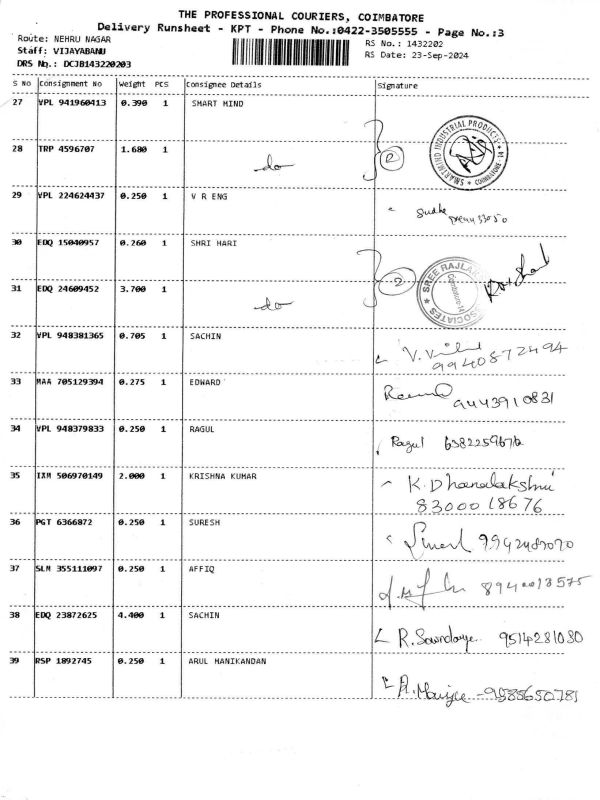 THE PROFESSIONAL COURIERS, COIMBATORE
Delivery Runsheet - KPT - Phone No.:0422-3505555 - Page No.:3
Route: NEHRU NAGAR
RS No.: 1432202
Staff: VIJAYABANU
RS Date: 23-Sep-2024
DRS No.: DCJB143220203
S No Consignment No Weight PCS Consignee Details Signature
27 VPL 941960413 0.390 1 SMART MIND
SMARTMIND INDUSTRIAL PRODUCTS COIMBATORE
28 TRP 4596707 1.680 1 do 2
29 VPL 224624437 0.250 1 V R ENG
Sudha
30 EDQ 15040957 0.260 1 SHRI HARI
31 EDQ 24609452 3.700 1 do 2
32 VPL 948381365 0.705 1 SACHIN
9940872494
33 MAA 705129394 0.275 1 EDWARD
9443910831
34 VPL 948379833 0.250 1 RAGUL
Ragul 6382259676
35 IXM 506970149 2.000 1 KRISHNA KUMAR
K. Dhanalakshmi
8300018676
36 PGT 6366872 0.250 1 SURESH
37 SLM 355111097 0.250 1 AFFIQ
38 EDQ 23872625 4.400 1 SACHIN
R. Soundarya 9514281030
39 RSP 1892745 0.250 1 ARUL MANIKANDAN